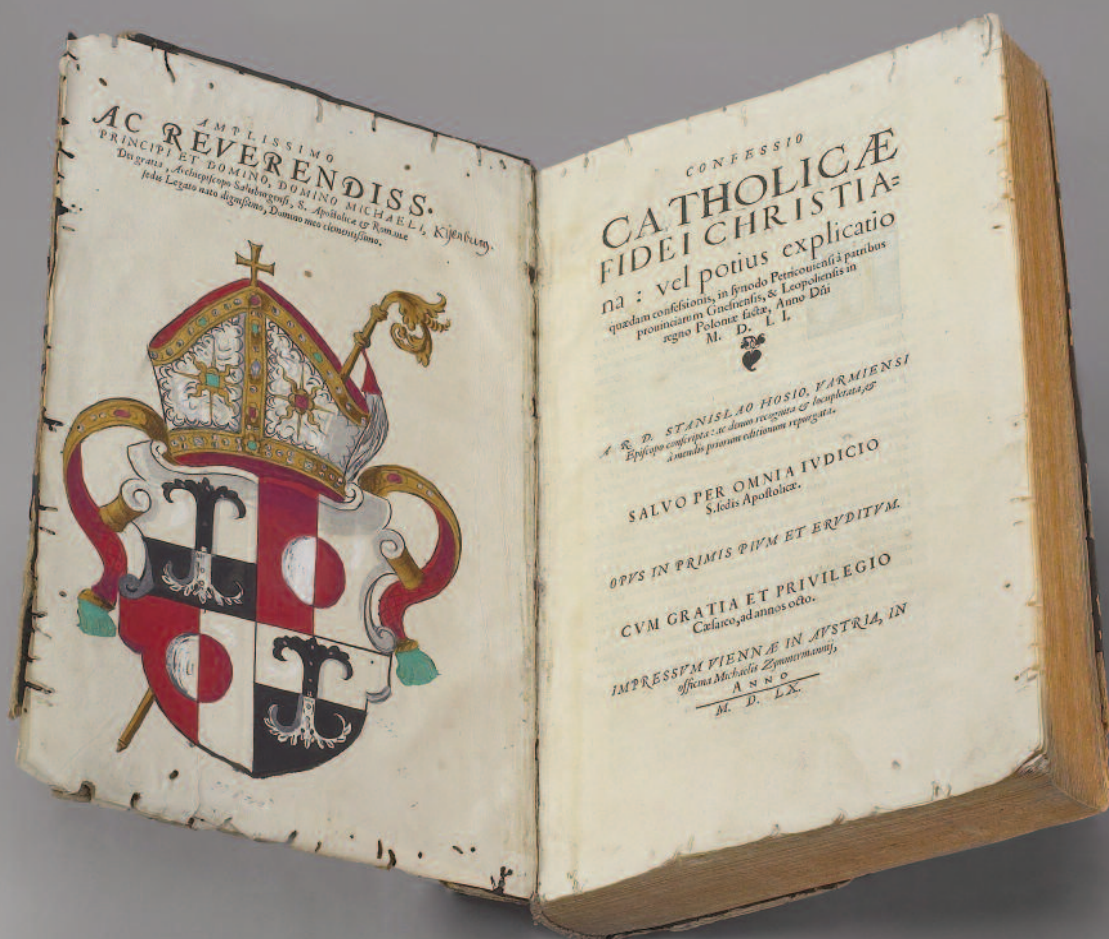 AMPLISSIMO
AC REVERENDISS.
PRINCIPI ET DOMINO, DOMINO MICHAELI, Kijenburg.
Dei gratia, Archiepiscopo Saltzburgensi, S. Apostolicæ & Romanæ
sedis Legato nato dignissimo, Domino meo clementissimo.
CONFESSIO
CATHOLICÆ
FIDEI CHRISTIA=
na : vel potius explicatio
quædam confessionis, in synodo Petricouiensi à patribus
prouinciarum Gnesnensis, & Leopoliensis in
regno Poloniæ factæ, Anno Dñi
M. D. L I.
A R. D. STANISLAO HOSIO, VARMIENSI
Episcopo conscripta: ac denuo recognita & locupletata, &
à mendis priorum editionum repurgata.
SALVO PER OMNIA IVDICIO
S. sedis Apostolicæ.
OPVS IN PRIMIS PIVM ET ERVDITVM.
CVM GRATIA ET PRIVILEGIO
Cæsareo, ad annos octo.
IMPRESSVM VIENNÆ IN AVSTRIA, IN
officina Michaelis Zymmermannij,
ANNO
M. D. LX.